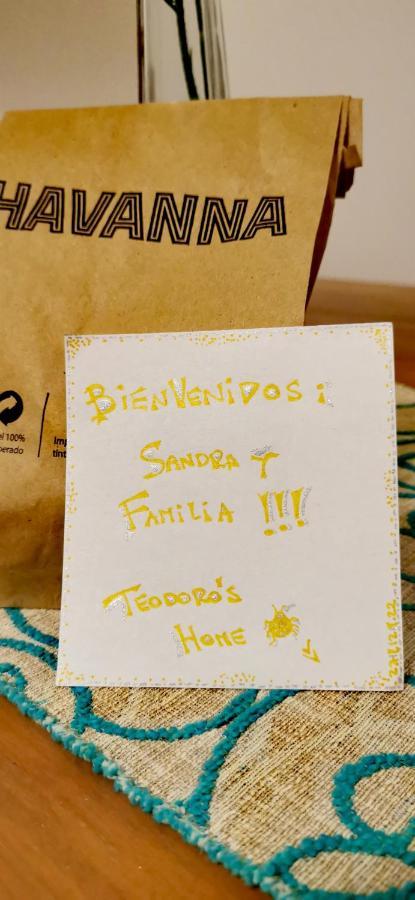 HAVANNA
el 100%
perado
Imp
tint
BIENVENIDOS ¡
SANDRA Y
FAMILIA !!!
TEODORO'S
HOME